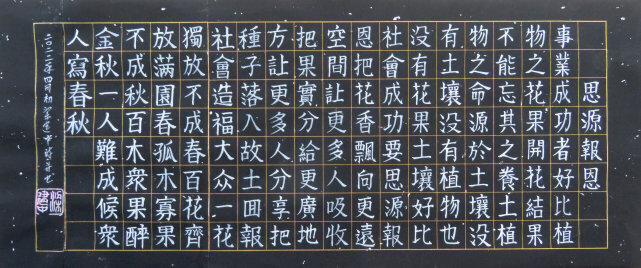 思源報恩
事業成功者好比植
物之花果開花結果
不能忘其之養土植
物之命源於土壤沒
有土壤沒有植物也
沒有花果土壤好比
社會成功要思源報
恩把花香飄向更遠
空間讓更多人吸收
把果實分給更廣地
方讓更多人分享把
種子落入故土回報
社會造福大众一花
獨放不成春百花齊
放满園春孤木寡果
不成秋百木衆果醉
金秋一人難成候衆
人寫春秋
二〇二二年四月初